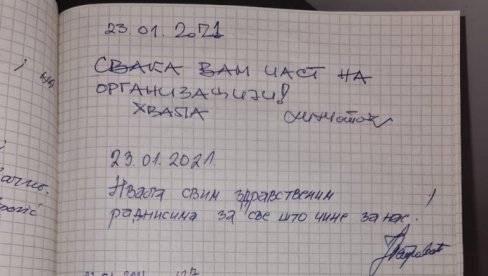 23.01.2021
СВАКА ВАМ ЧАСТ НА
ОРГАНИЗАЦИЈИ!
ХВАЛА
23.01.2021.
Хвала свим здравственим
радницима за све што чине за нас.